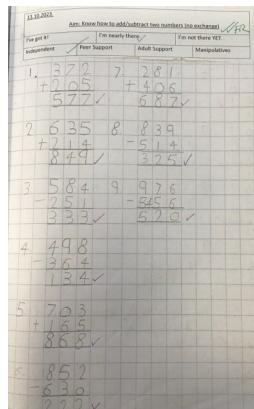 13.10.2023
Aim: Know how to add/subtract two numbers (no exchange)
I've got it! I'm nearly there I'm not there YET.
Independent Peer Support Adult Support Manipulatives
1. 372
+ 205
577 ✓
2 635
+ 214
849 ✓
3 584
- 251
333 ✓
4 498
- 364
134 ✓
5 703
+ 165
868 ✓
6. 852
- 630
222 ✓
7. 281
+ 406
687 ✓
8. 839
- 514
325 ✓
9 976
- 456
520 ✓